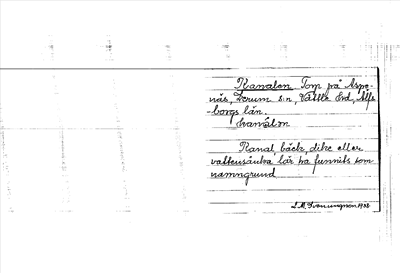 Kanalen Torp på Aspe-
näs, Lerum s:n, Vättle hd, Älfs-
borgs län.
kvanaln
Kanal bäck, dike eller
vattensänka lär ha funnits som
namngrund
S. M. Svenungson 1938